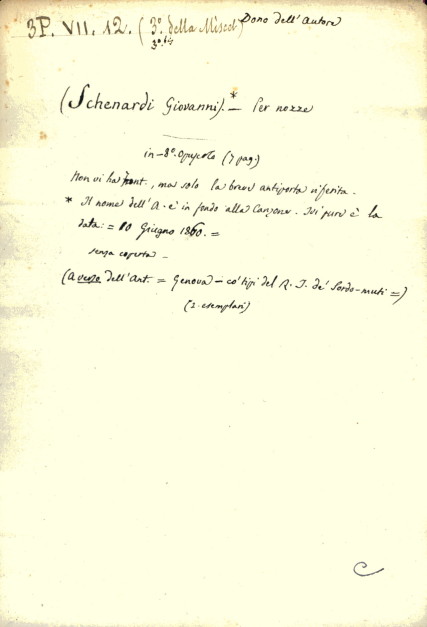 3P. VII. 12. (3º. della Miscel.) Dono dell'Autore
(Schenardi Giovanni).* — Per nozze
in-8º. opuscolo (7 pag.)
Non vi ha front., ma solo la breve antiporta riferita.
* Il nome dell'A. è in fondo alla Canzone. Ivi pure è la
data: = 10 Giugno 1860. =
senza coperta —
(a verso dell'Ant. = Genova — co' tipi del R. I. de' Sordo-muti =)
(2. esemplari)
C